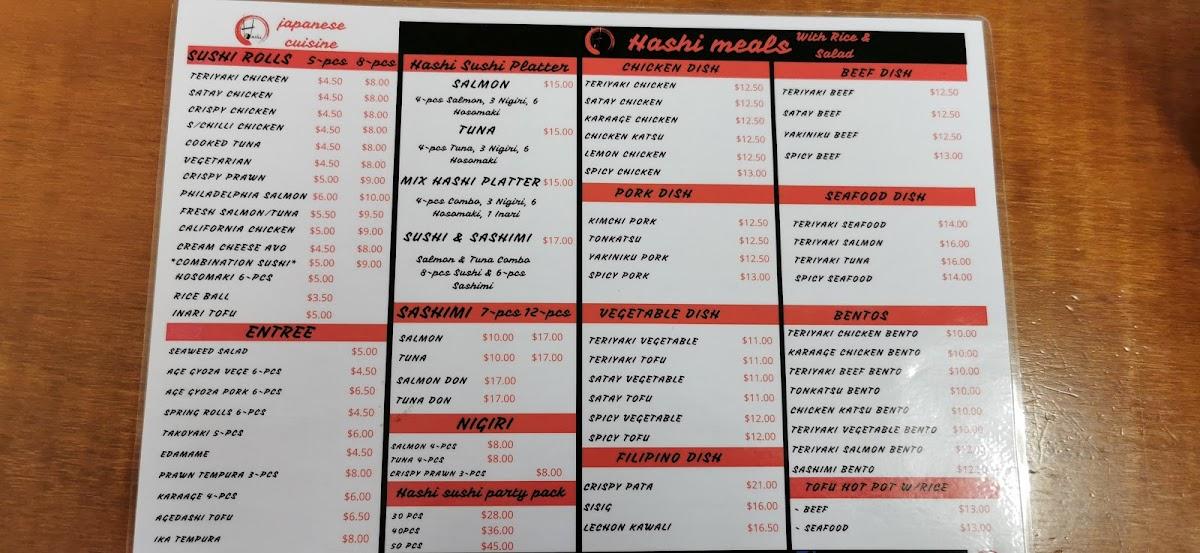 japanese
cuisine
SUSHI ROLLS 5-pcs 8-pcs
TERIYAKI CHICKEN $4.50 $8.00
SATAY CHICKEN $4.50 $8.00
CRISPY CHICKEN $4.50 $8.00
S/CHILLI CHICKEN $4.50 $8.00
COOKED TUNA $4.50 $8.00
VEGETARIAN $4.50 $8.00
CRISPY PRAWN $5.00 $9.00
PHILADELPHIA SALMON $6.00 $10.00
FRESH SALMON/TUNA $5.50 $9.50
CALIFORNIA CHICKEN $5.00 $9.00
CREAM CHEESE AVO $4.50 $8.00
*COMBINATION SUSHI* $5.00 $9.00
HOSOMAKI 6-PCS $5.00
RICE BALL $3.50
INARI TOFU $5.00
ENTREE
SEAWEED SALAD $5.00
AGE GYOZA VEGE 6-PCS $4.50
AGE GYOZA PORK 6-PCS $6.50
SPRING ROLLS 6-PCS $4.50
TAKOYAKI 5-PCS $6.00
EDAMAME $4.50
PRAWN TEMPURA 3-PCS $8.00
KARAAGE 4-PCS $6.00
AGEDASHI TOFU $6.50
IKA TEMPURA $8.00
Hashi meals With Rice &
Salad
Hashi Sushi Platter
SALMON $15.00
4-pcs Salmon, 3 Nigiri, 6
Hosomaki
TUNA $15.00
4-pcs Tuna, 3 Nigiri, 6
Hosomaki
MIX HASHI PLATTER $15.00
4-pcs Combo, 3 Nigiri, 6
Hosomaki, 1 Inari
SUSHI & SASHIMI $17.00
Salmon & Tuna Combo
8-pcs Sushi & 6-pcs
Sashimi
SASHIMI 7-pcs 12-pcs
SALMON $10.00 $17.00
TUNA $10.00 $17.00
SALMON DON $17.00
TUNA DON $17.00
NIGIRI
SALMON 4-PCS $8.00
TUNA 4-PCS $8.00
CRISPY PRAWN 3-PCS $8.00
Hashi sushi party pack
30 PCS $28.00
40PCS $36.00
50 PCS $45.00
CHICKEN DISH
TERIYAKI CHICKEN $12.50
SATAY CHICKEN $12.50
KARAAGE CHICKEN $12.50
CHICKEN KATSU $12.50
LEMON CHICKEN $12.50
SPICY CHICKEN $13.00
PORK DISH
KIMCHI PORK $12.50
TONKATSU $12.50
YAKINIKU PORK $12.50
SPICY PORK $13.00
VEGETABLE DISH
TERIYAKI VEGETABLE $11.00
TERIYAKI TOFU $11.00
SATAY VEGETABLE $11.00
SATAY TOFU $11.00
SPICY VEGETABLE $12.00
SPICY TOFU $12.00
FILIPINO DISH
CRISPY PATA $21.00
SISIG $16.00
LECHON KAWALI $16.50
BEEF DISH
TERIYAKI BEEF $12.50
SATAY BEEF $12.50
YAKINIKU BEEF $12.50
SPICY BEEF $13.00
SEAFOOD DISH
TERIYAKI SEAFOOD $14.00
TERIYAKI SALMON $16.00
TERIYAKI TUNA $16.00
SPICY SEAFOOD $14.00
BENTOS
TERIYAKI CHICKEN BENTO $10.00
KARAAGE CHICKEN BENTO $10.00
TERIYAKI BEEF BENTO $10.00
TONKATSU BENTO $10.00
CHICKEN KATSU BENTO $10.00
TERIYAKI VEGETABLE BENTO $10.00
TERIYAKI SALMON BENTO
SASHIMI BENTO
TOFU HOT POT W/RICE
- BEEF $13.00
- SEAFOOD $13.00